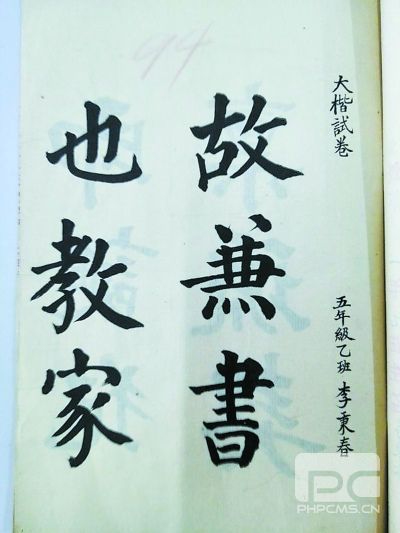 94
大楷試卷
五年級乙班 李秉春
故兼書
也教家
PC
PHPCMS.CN